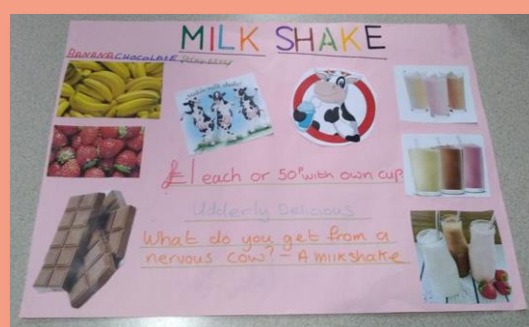 MILK SHAKE
BANANA CHOCOLATE
£1 each or 50p with own cup
Udderly Delicious
What do you get from a
nervous cow? - A milkshake